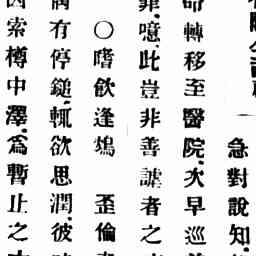 急對說知
命轉移至醫院.次早巡
罪.噫.此豈非善謔者之
○嗜飲逢鴆　歪倫
偶有停鎚.輒欲思潤.彼
因索樽中澤.為暫止之